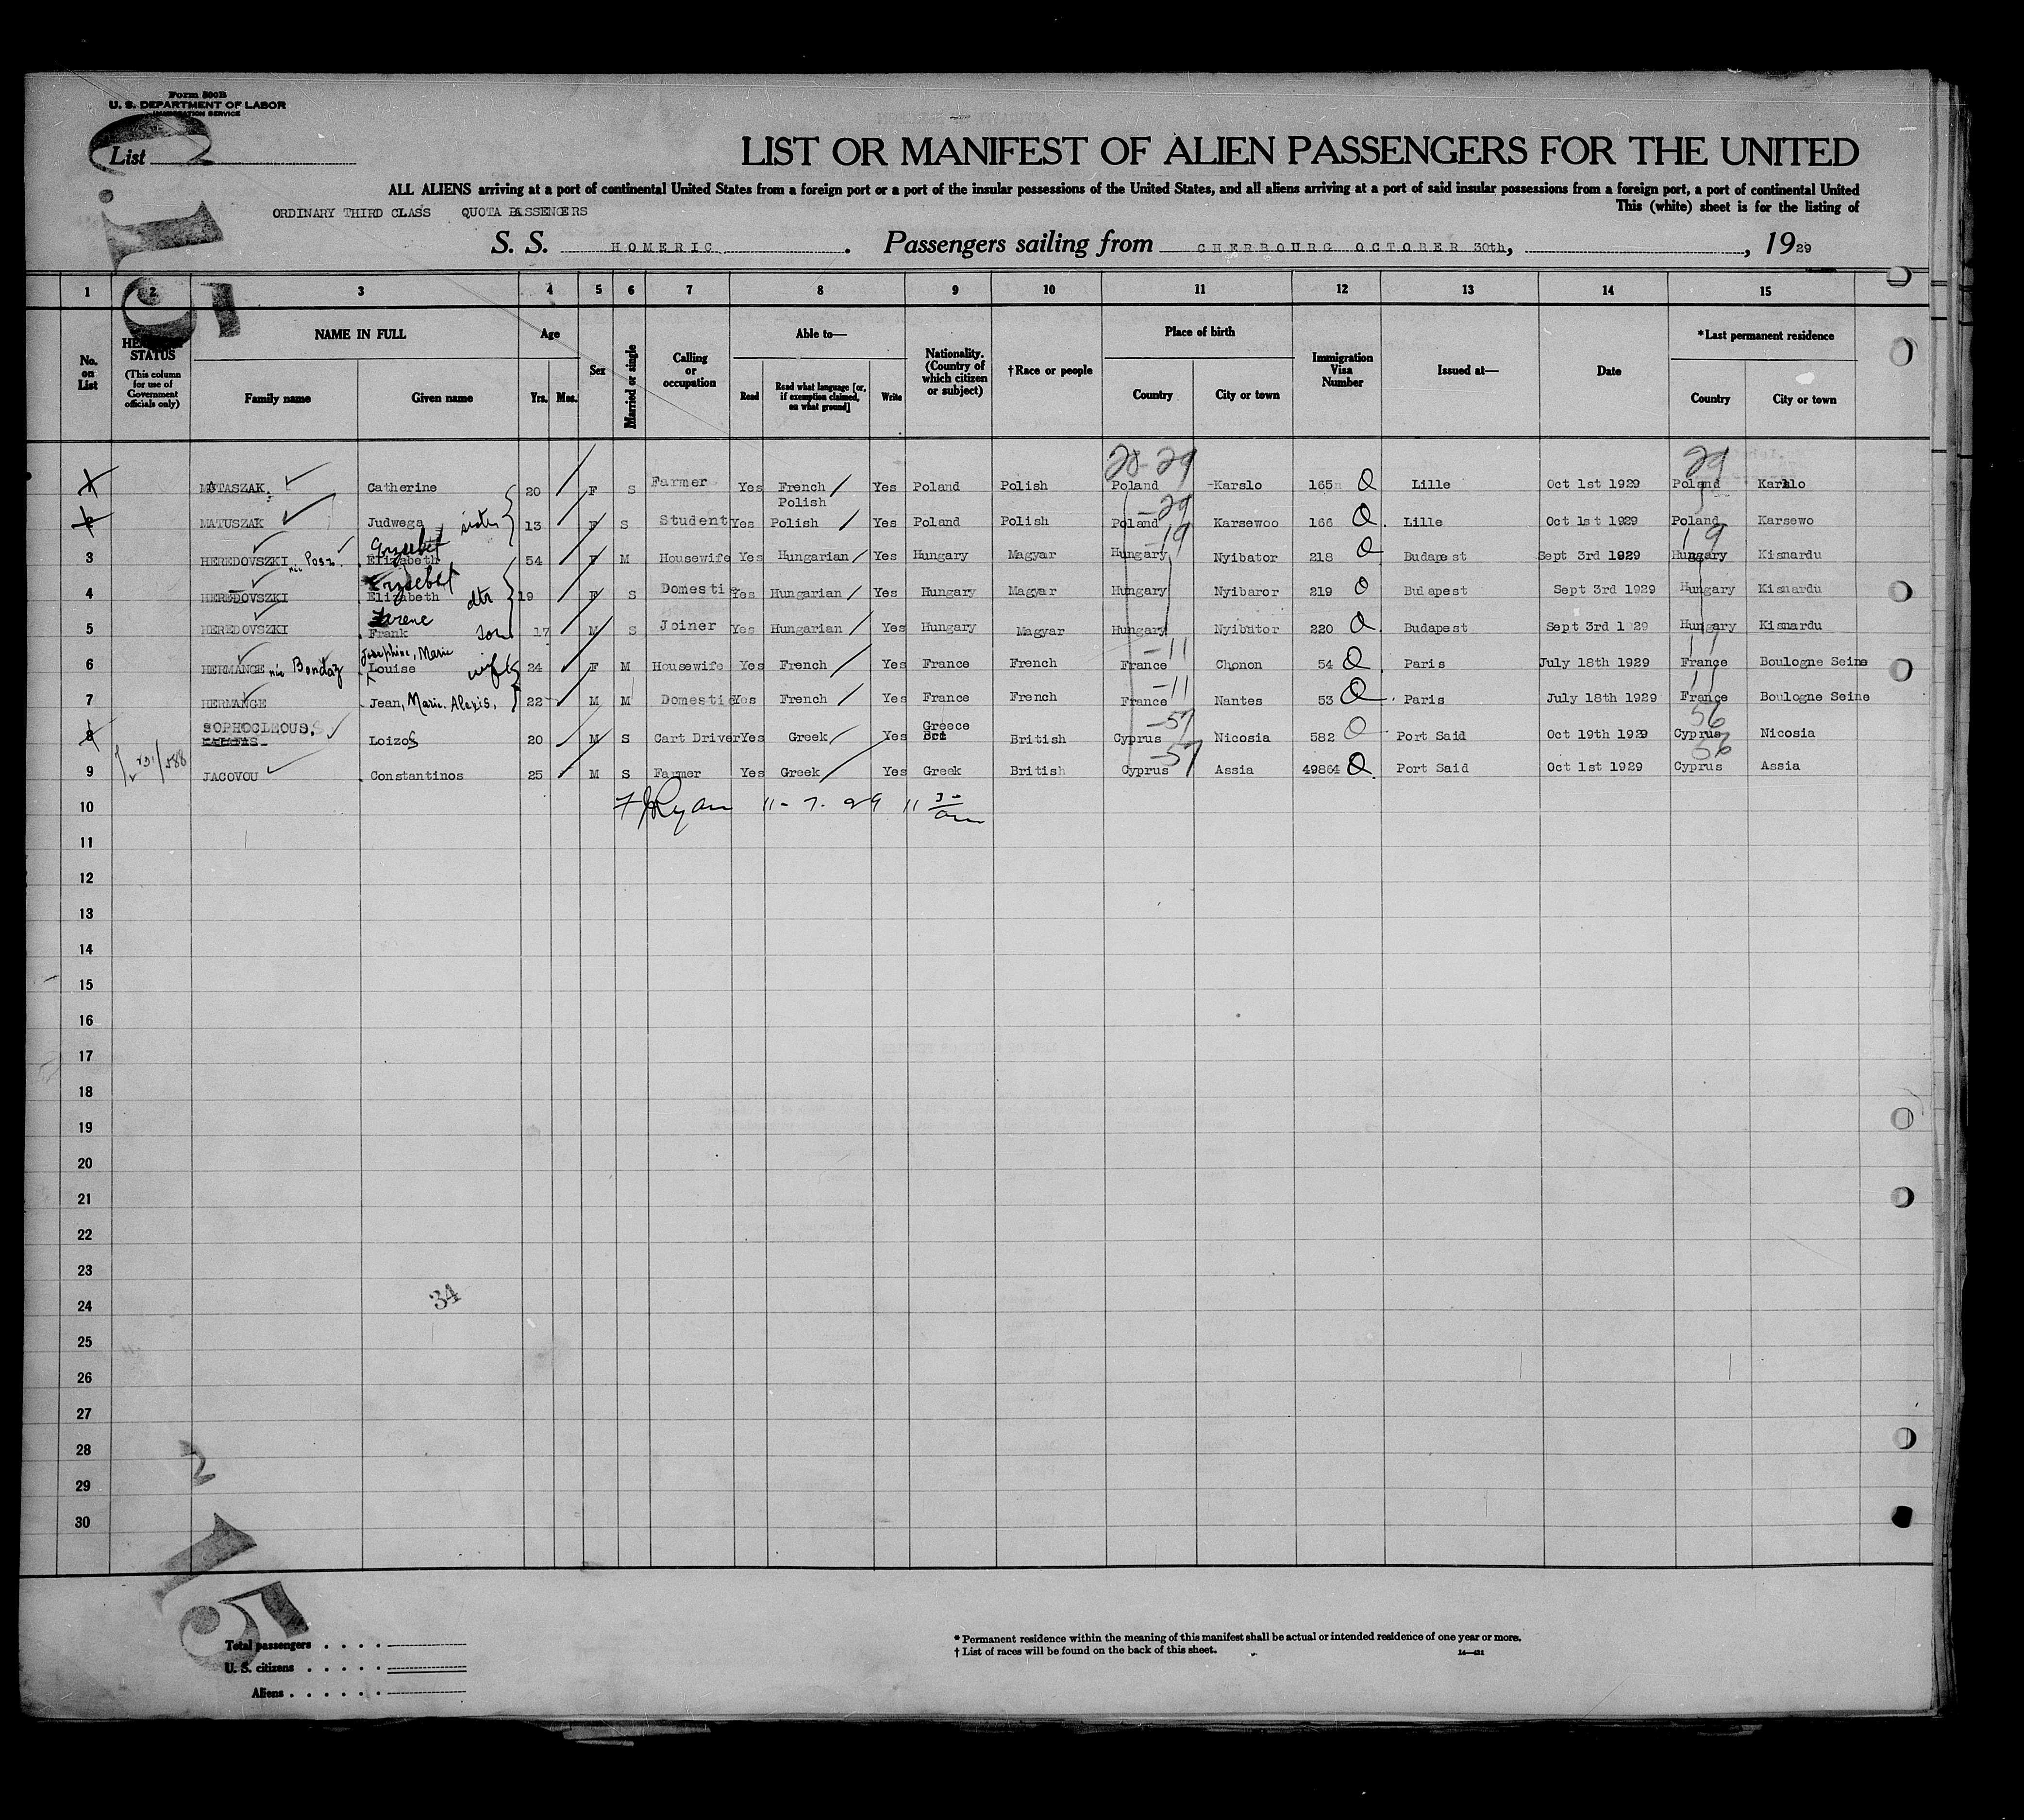 Form 500B
U. S. DEPARTMENT OF LABOR
IMMIGRATION SERVICE
List
LIST OR MANIFEST OF ALIEN PASSENGERS FOR THE UNITED
ALL ALIENS arriving at a port of continental United States from a foreign port or a port of the insular possessions of the United States, and all aliens arriving at a port of said insular possessions from a foreign port, a port of continental United
This (white) sheet is for the listing of
ORDINARY THIRD CLASS QUOTA PASSENGERS
S. S. HOMERIC. Passengers sailing from CHERBOURG OCTOBER 30th, , 1929
1 2 3 4 5 6 7 8 9 10 11 12 13 14 15
No. on List
STATUS (This column for use of Government officials only)
NAME IN FULL Family name Given name
Age Yrs. Mos.
Sex
Married or single
Calling or occupation
Able to— Read Read what language [or, if exemption claimed, on what ground] Write
Nationality. (Country of which citizen or subject)
†Race or people
Place of birth Country City or town
Immigration Visa Number
Issued at—
Date
*Last permanent residence Country City or town
28-29 29
1 MATASZAK Catherine 20 F S Farmer Yes French Polish Yes Poland Polish Poland Karslo 165 Q Lille Oct 1st 1929 Poland Karslo
-29
2 MATUSZAK Judwega sister 13 F S Student Yes Polish Yes Poland Polish Poland Karsewoo 166 Q. Lille Oct 1st 1929 Poland Karsewo
-19 19
3 HEREDOVSZKI Erzsebet Elizabeth 54 F M Housewife Yes Hungarian Yes Hungary Magyar Hungary Nyibator 218 Q Budapest Sept 3rd 1929 Hungary Kisnardu
4 HEREDOVSZKI Erzsebet Elizabeth dtr 19 F S Domestic Yes Hungarian Yes Hungary Magyar Hungary Nyibaror 219 Q Budapest Sept 3rd 1929 Hungary Kisnardu
5 HEREDOVSZKI Frank son 17 M S Joiner Yes Hungarian Yes Hungary Magyar Hungary Nyibator 220 Q. Budapest Sept 3rd 1929 Hungary Kisnardu
-11 11
6 HERMANGE née Bondaz Josephine, Marie Louise wife 24 F M Housewife Yes French Yes France French France Chonon 54 Q Paris July 18th 1929 France Boulogne Seine
-11 11
7 HERMANGE Jean, Marie. Alexis, 22 M M Domestic Yes French Yes France French France Nantes 53 Q Paris July 18th 1929 France Boulogne Seine
-57 56
8 SOPHOCLEOUS. Loizos 20 M S Cart Driver Yes Greek Yes Greece British Cyprus Nicosia 582 Q Port Said Oct 19th 1929 Cyprus Nicosia
-57 56
9 JACOVOU Constantinos 25 M S Farmer Yes Greek Yes Greek British Cyprus Assia 49864 Q. Port Said Oct 1st 1929 Cyprus Assia
10 Ryan 11-7-29 11 30 am
11
12
13
14
15
16
17
18
19
20
21
22
23
24
34
25
26
27
28
29
30
Total passengers . . . .
U. S. citizens . . . . .
Aliens . . . . . .
* Permanent residence within the meaning of this manifest shall be actual or intended residence of one year or more.
† List of races will be found on the back of this sheet.